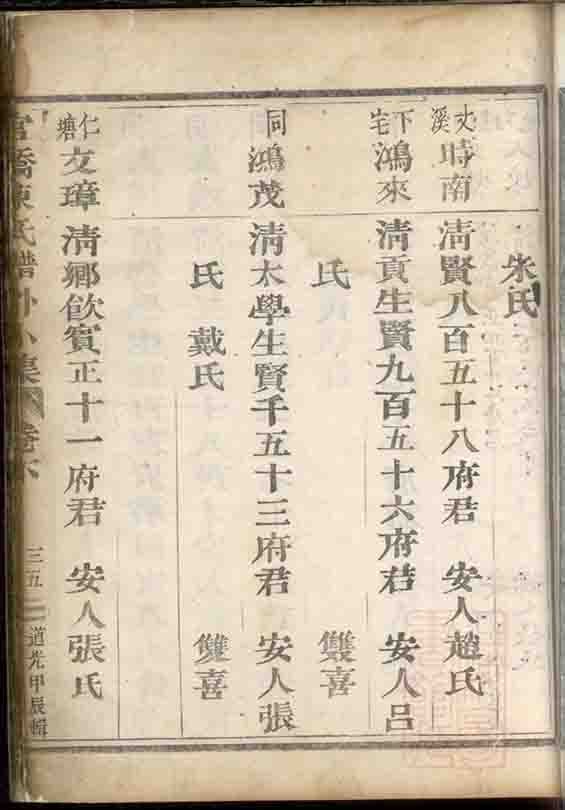 朱氏
丈溪 時南 清賢八百五十八府君 安人趙氏
下宅 鴻來 清貢生賢九百五十六府君 安人呂
氏 雙喜
同 鴻茂 清太學生賢千五十三府君 安人張
氏 戴氏 雙喜
仁塘 文璋 清鄉飲賓正十一府君 安人張氏
官橋陳氏譜外小集 卷下 三五 道光甲辰輯